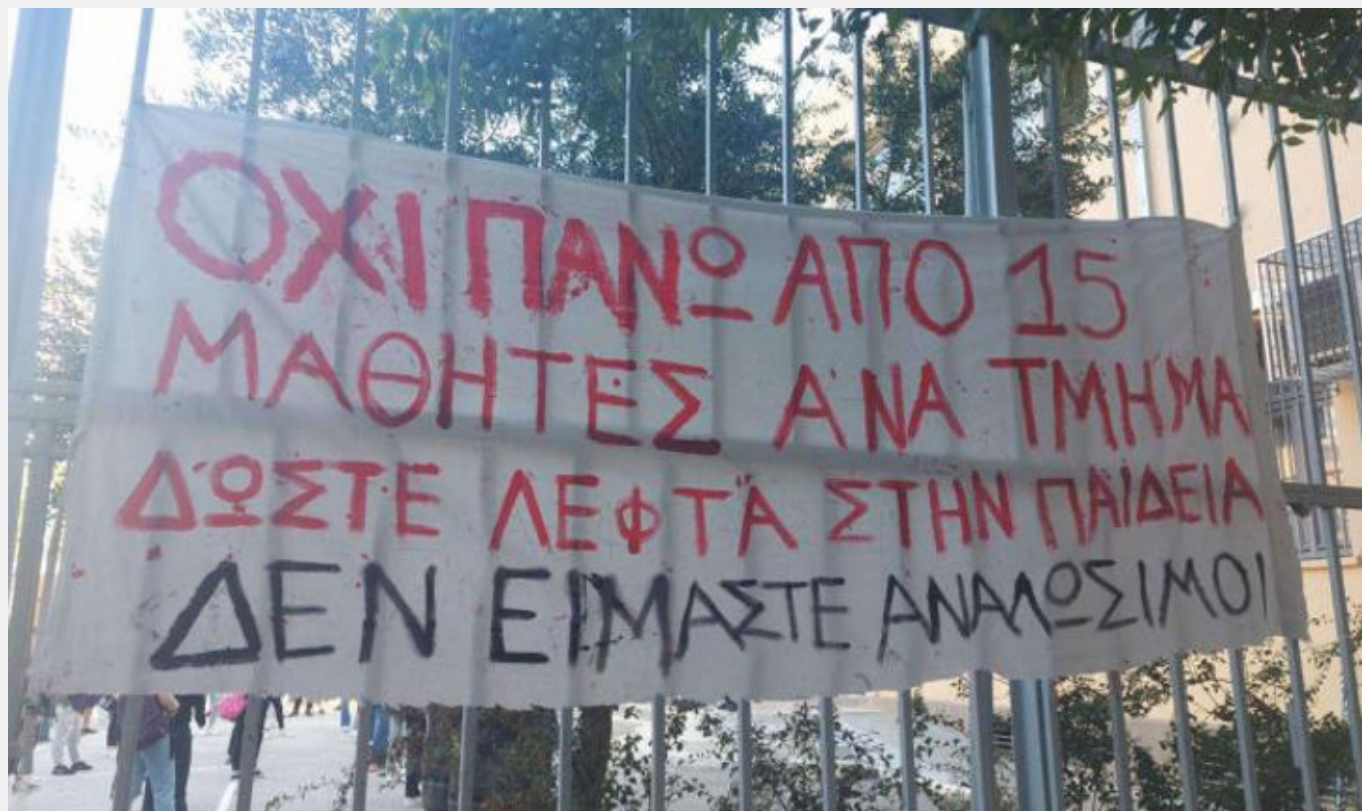 ΟΧΙ ΠΑΝΩ ΑΠΟ 15
ΜΑΘΗΤΕΣ ΑΝΑ ΤΜΗΜΑ
ΔΩΣΤΕ ΛΕΦΤΑ ΣΤΗΝ ΠΑΙΔΕΙΑ
ΔΕΝ ΕΙΜΑΣΤΕ ΑΝΑΛΩΣΙΜΟΙ